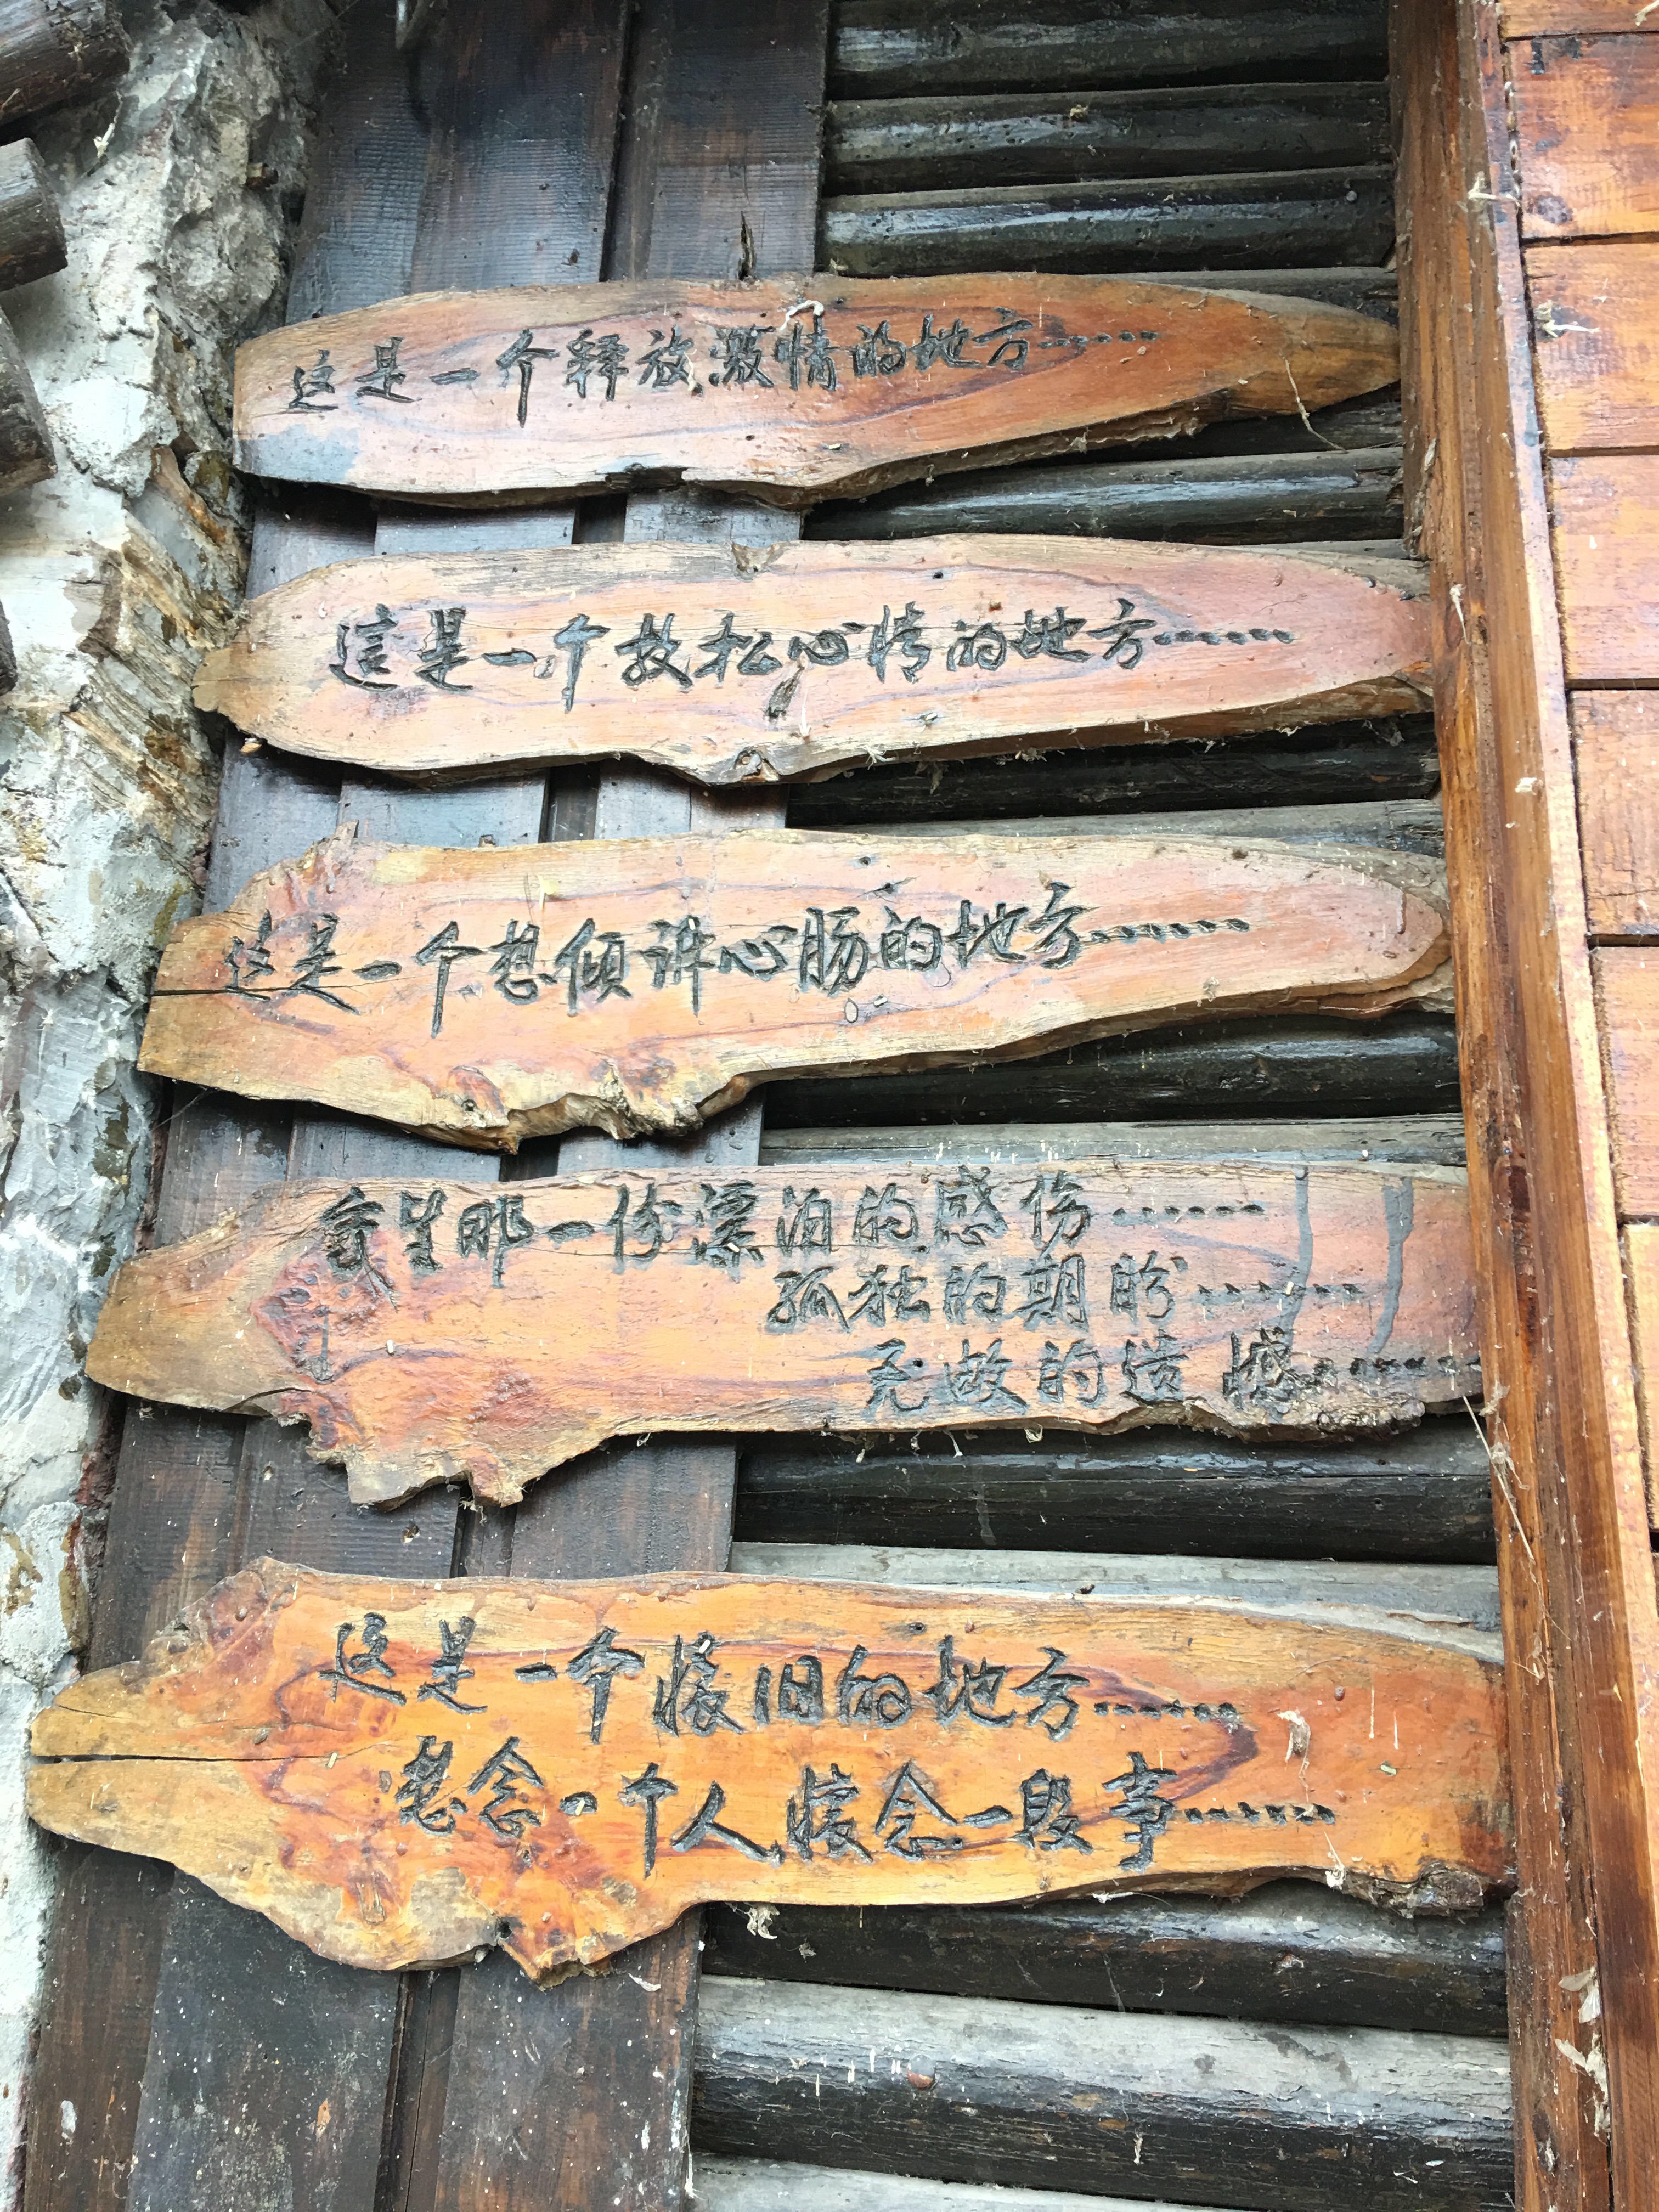 这是一个释放激情的地方……
這是一个放松心情的地方……
这是一个想倾诉心肠的地方……
那一份漂泊的感伤……
孤独的期盼……
无故的造憾……
这是一个懷旧的地方……
念一个人懷念一段事……